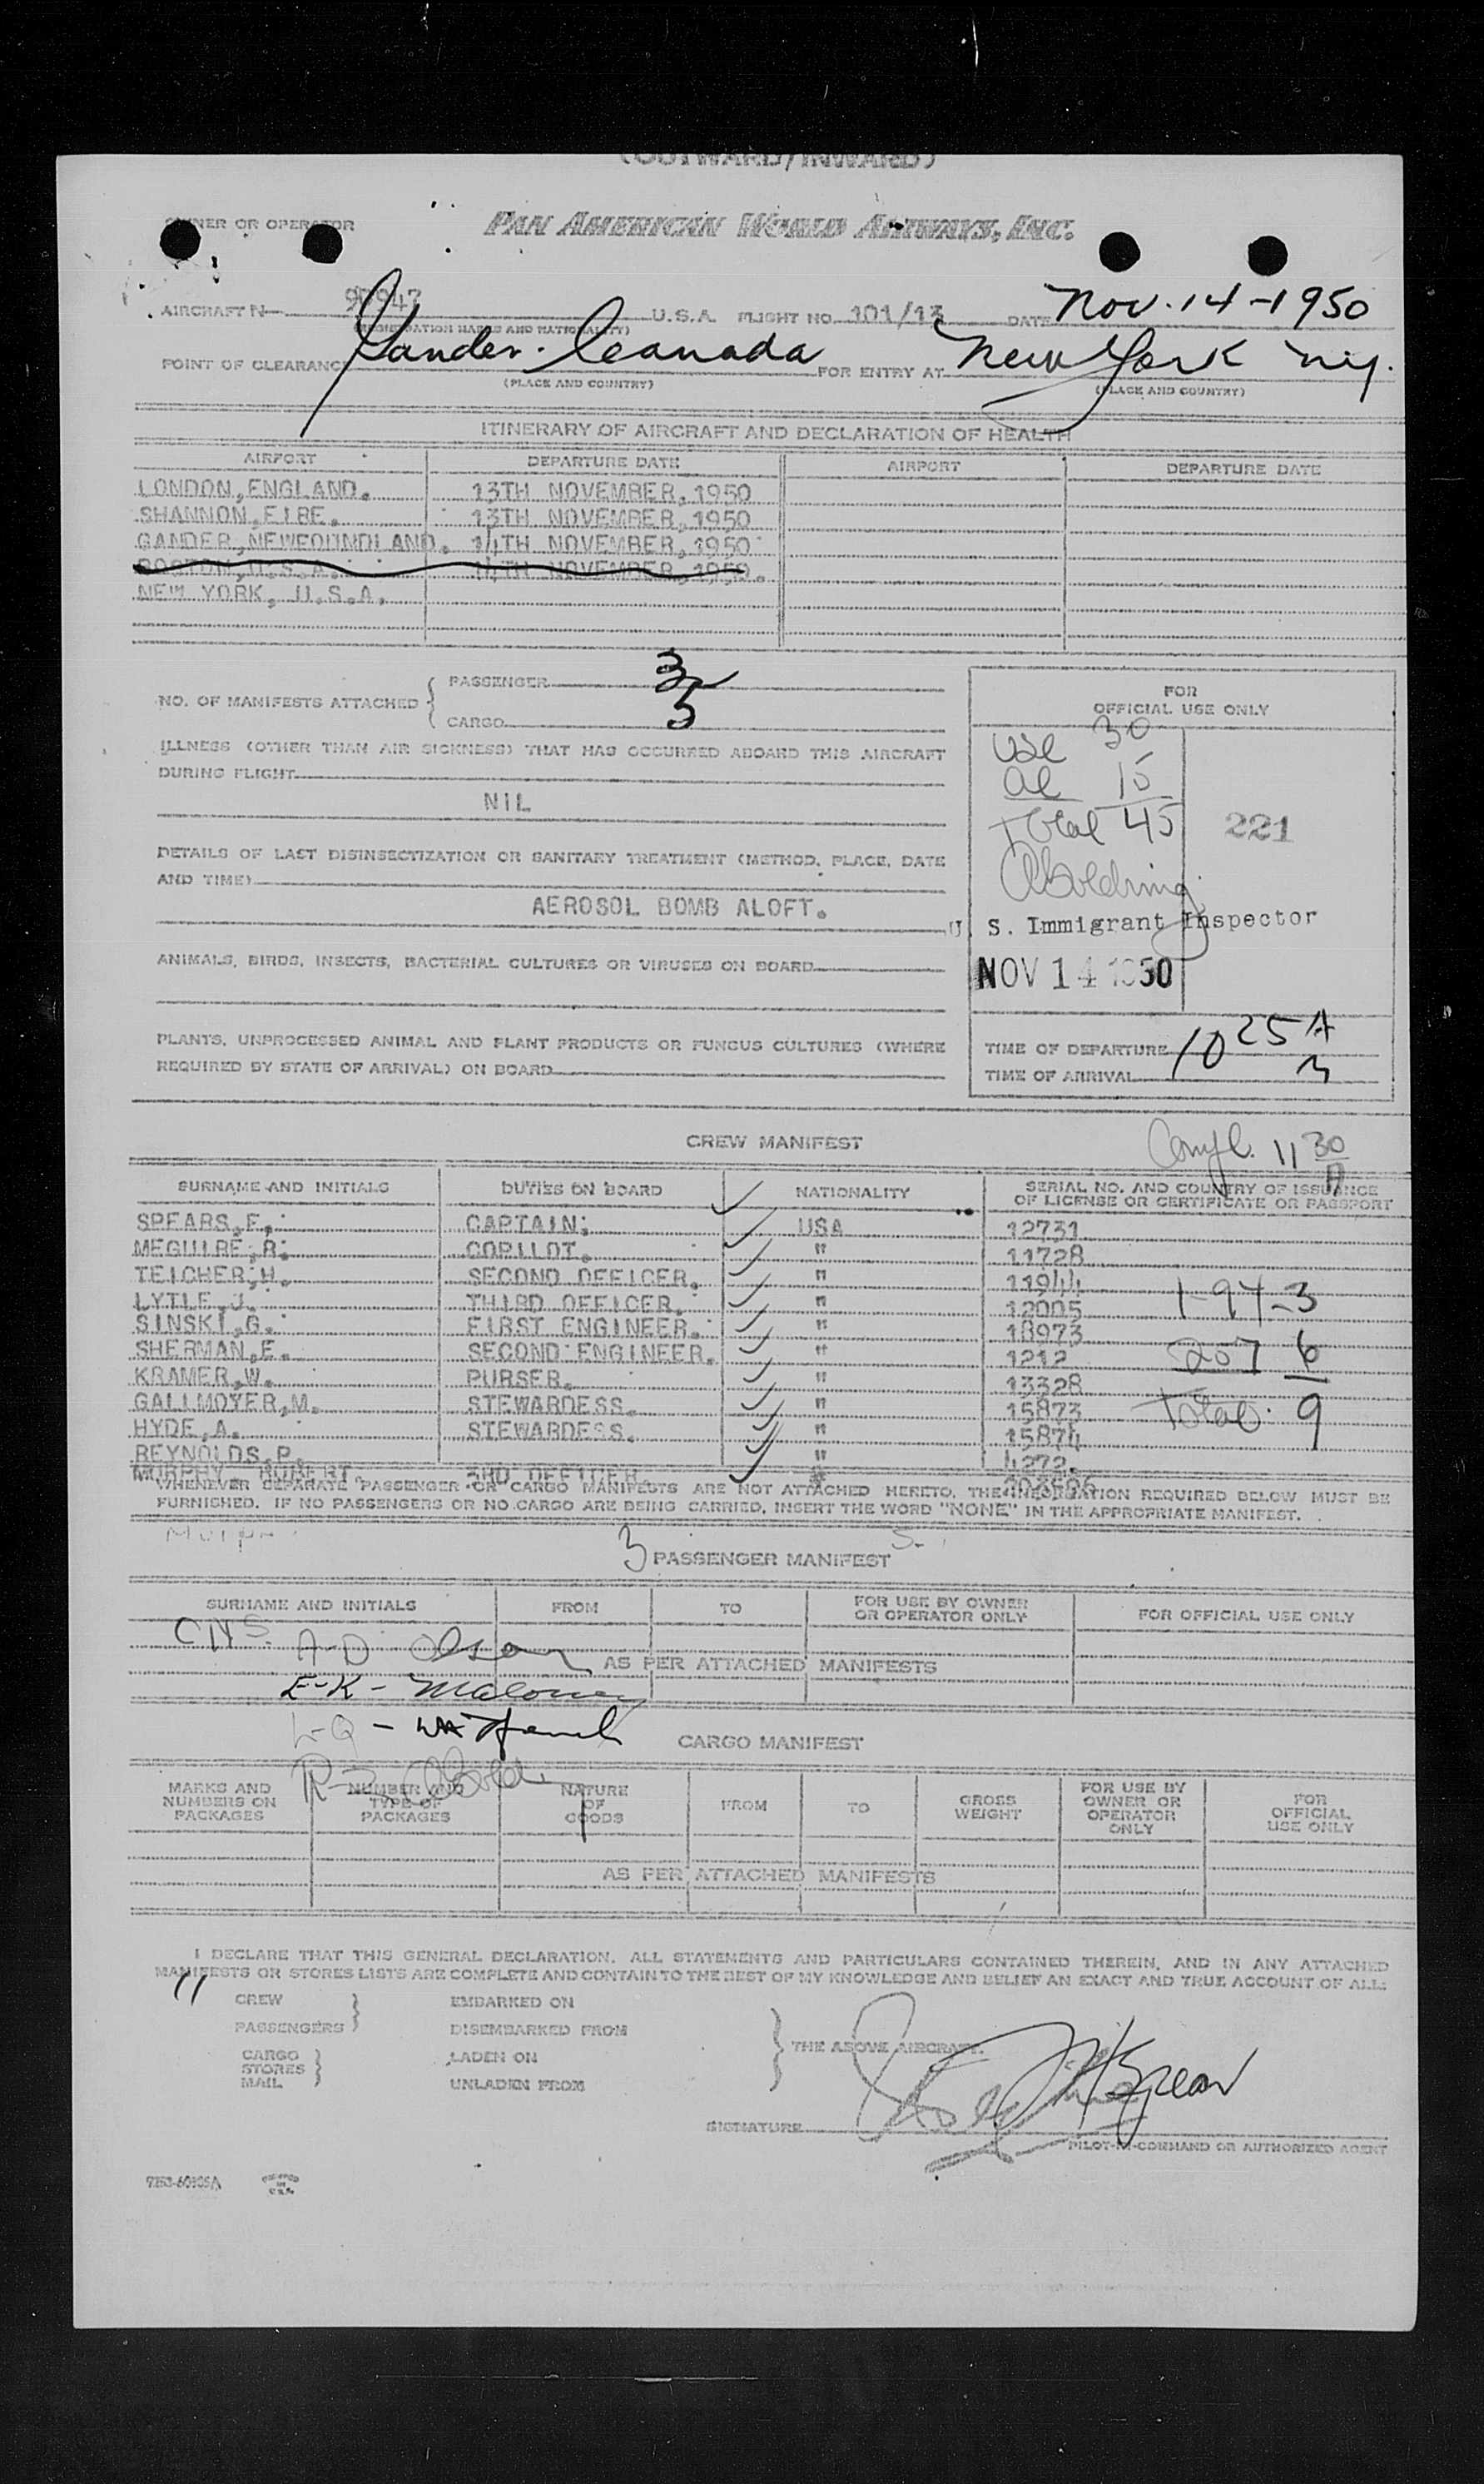 (OUTWARD/INWARD)
OWNER OR OPERATOR PAN AMERICAN WORLD AIRWAYS, INC.
AIRCRAFT N- 90947 U.S.A. FLIGHT NO. 101/13 DATE Nov. 14-1950
(REGISTRATION MARKS AND NATIONALITY)
POINT OF CLEARANCE Gander. Canada FOR ENTRY AT New York N.Y.
(PLACE AND COUNTRY) (PLACE AND COUNTRY)
ITINERARY OF AIRCRAFT AND DECLARATION OF HEALTH
AIRPORT DEPARTURE DATE AIRPORT DEPARTURE DATE
LONDON, ENGLAND. 13TH NOVEMBER, 1950
SHANNON, EIRE. 13TH NOVEMBER, 1950
GANDER, NEWFOUNDLAND. 14TH NOVEMBER, 1950
BOSTON, U.S.A. 14TH NOVEMBER, 1950.
NEW YORK, U.S.A.
NO. OF MANIFESTS ATTACHED PASSENGER 3
CARGO 5
FOR
OFFICIAL USE ONLY
USC 30
al 15
Total 45
221
U. S. Immigrant Inspector
NOV 14 1950
TIME OF DEPARTURE
TIME OF ARRIVAL 10 25 A M
ILLNESS (OTHER THAN AIR SICKNESS) THAT HAS OCCURRED ABOARD THIS AIRCRAFT
DURING FLIGHT
NIL
DETAILS OF LAST DISINSECTIZATION OR SANITARY TREATMENT (METHOD, PLACE, DATE
AND TIME)
AEROSOL BOMB ALOFT.
ANIMALS, BIRDS, INSECTS, BACTERIAL CULTURES OR VIRUSES ON BOARD
PLANTS, UNPROCESSED ANIMAL AND PLANT PRODUCTS OR FUNGUS CULTURES (WHERE
REQUIRED BY STATE OF ARRIVAL) ON BOARD
CREW MANIFEST
Compl. 11 30 A
SURNAME AND INITIALS DUTIES ON BOARD NATIONALITY SERIAL NO. AND COUNTRY OF ISSUANCE
OF LICENSE OR CERTIFICATE OR PASSPORT
SPEARS, E. CAPTAIN. USA 12731
MEGUIRE, R. COPILOT. " 11728
TEICHER, H. SECOND OFFICER. " 11944
LYTLE, J. THIRD OFFICER. " 12005 1-94-3
SINSKI, G. FIRST ENGINEER. " 18973
SHERMAN, E. SECOND ENGINEER. " 1212 207 6
KRAMER, W. PURSER. " 13328
GALLMOYER, M. STEWARDESS. " 15873 Total 9
HYDE, A. STEWARDESS. " 15874
REYNOLDS, P. " 4272.
MURPHY, ROBERT. 3RD OFFICER. "
WHENEVER SEPARATE PASSENGER OR CARGO MANIFESTS ARE NOT ATTACHED HERETO, THE INFORMATION REQUIRED BELOW MUST BE
FURNISHED. IF NO PASSENGERS OR NO CARGO ARE BEING CARRIED, INSERT THE WORD "NONE" IN THE APPROPRIATE MANIFEST.
3 PASSENGER MANIFEST S.
SURNAME AND INITIALS FROM TO FOR USE BY OWNER
OR OPERATOR ONLY FOR OFFICIAL USE ONLY
A-D Olson
AS PER ATTACHED MANIFESTS
E-K - Maloney
L-Q -
CARGO MANIFEST
MARKS AND
NUMBERS ON
PACKAGES
NUMBER AND
TYPE OF
PACKAGES
NATURE
OF
GOODS
FROM TO GROSS
WEIGHT
FOR USE BY
OWNER OR
OPERATOR
ONLY
FOR
OFFICIAL
USE ONLY
AS PER ATTACHED MANIFESTS
I DECLARE THAT THIS GENERAL DECLARATION, ALL STATEMENTS AND PARTICULARS CONTAINED THEREIN, AND IN ANY ATTACHED
MANIFESTS OR STORES LISTS ARE COMPLETE AND CONTAIN TO THE BEST OF MY KNOWLEDGE AND BELIEF AN EXACT AND TRUE ACCOUNT OF ALL:
11
CREW EMBARKED ON
PASSENGERS DISEMBARKED FROM
THE ABOVE AIRCRAFT.
CARGO LADEN ON
STORES
MAIL UNLADEN FROM
SIGNATURE
PILOT-IN-COMMAND OR AUTHORIZED AGENT
PRINTED
IN
U.S.A.